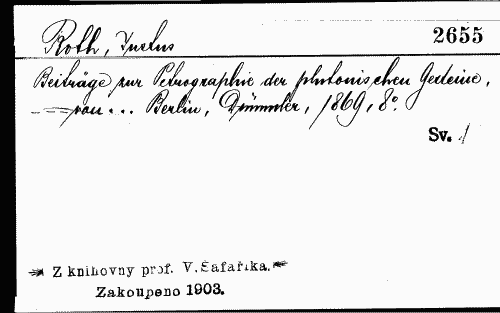 Roth, Justus
2655
Beiträge zur Petrographie der plutonischen Gesteine,
von ... Berlin, Dümmler, 1869, 8°.
Sv. 1
Z knihovny prof. V. Šafaříka.
Zakoupeno 1903.